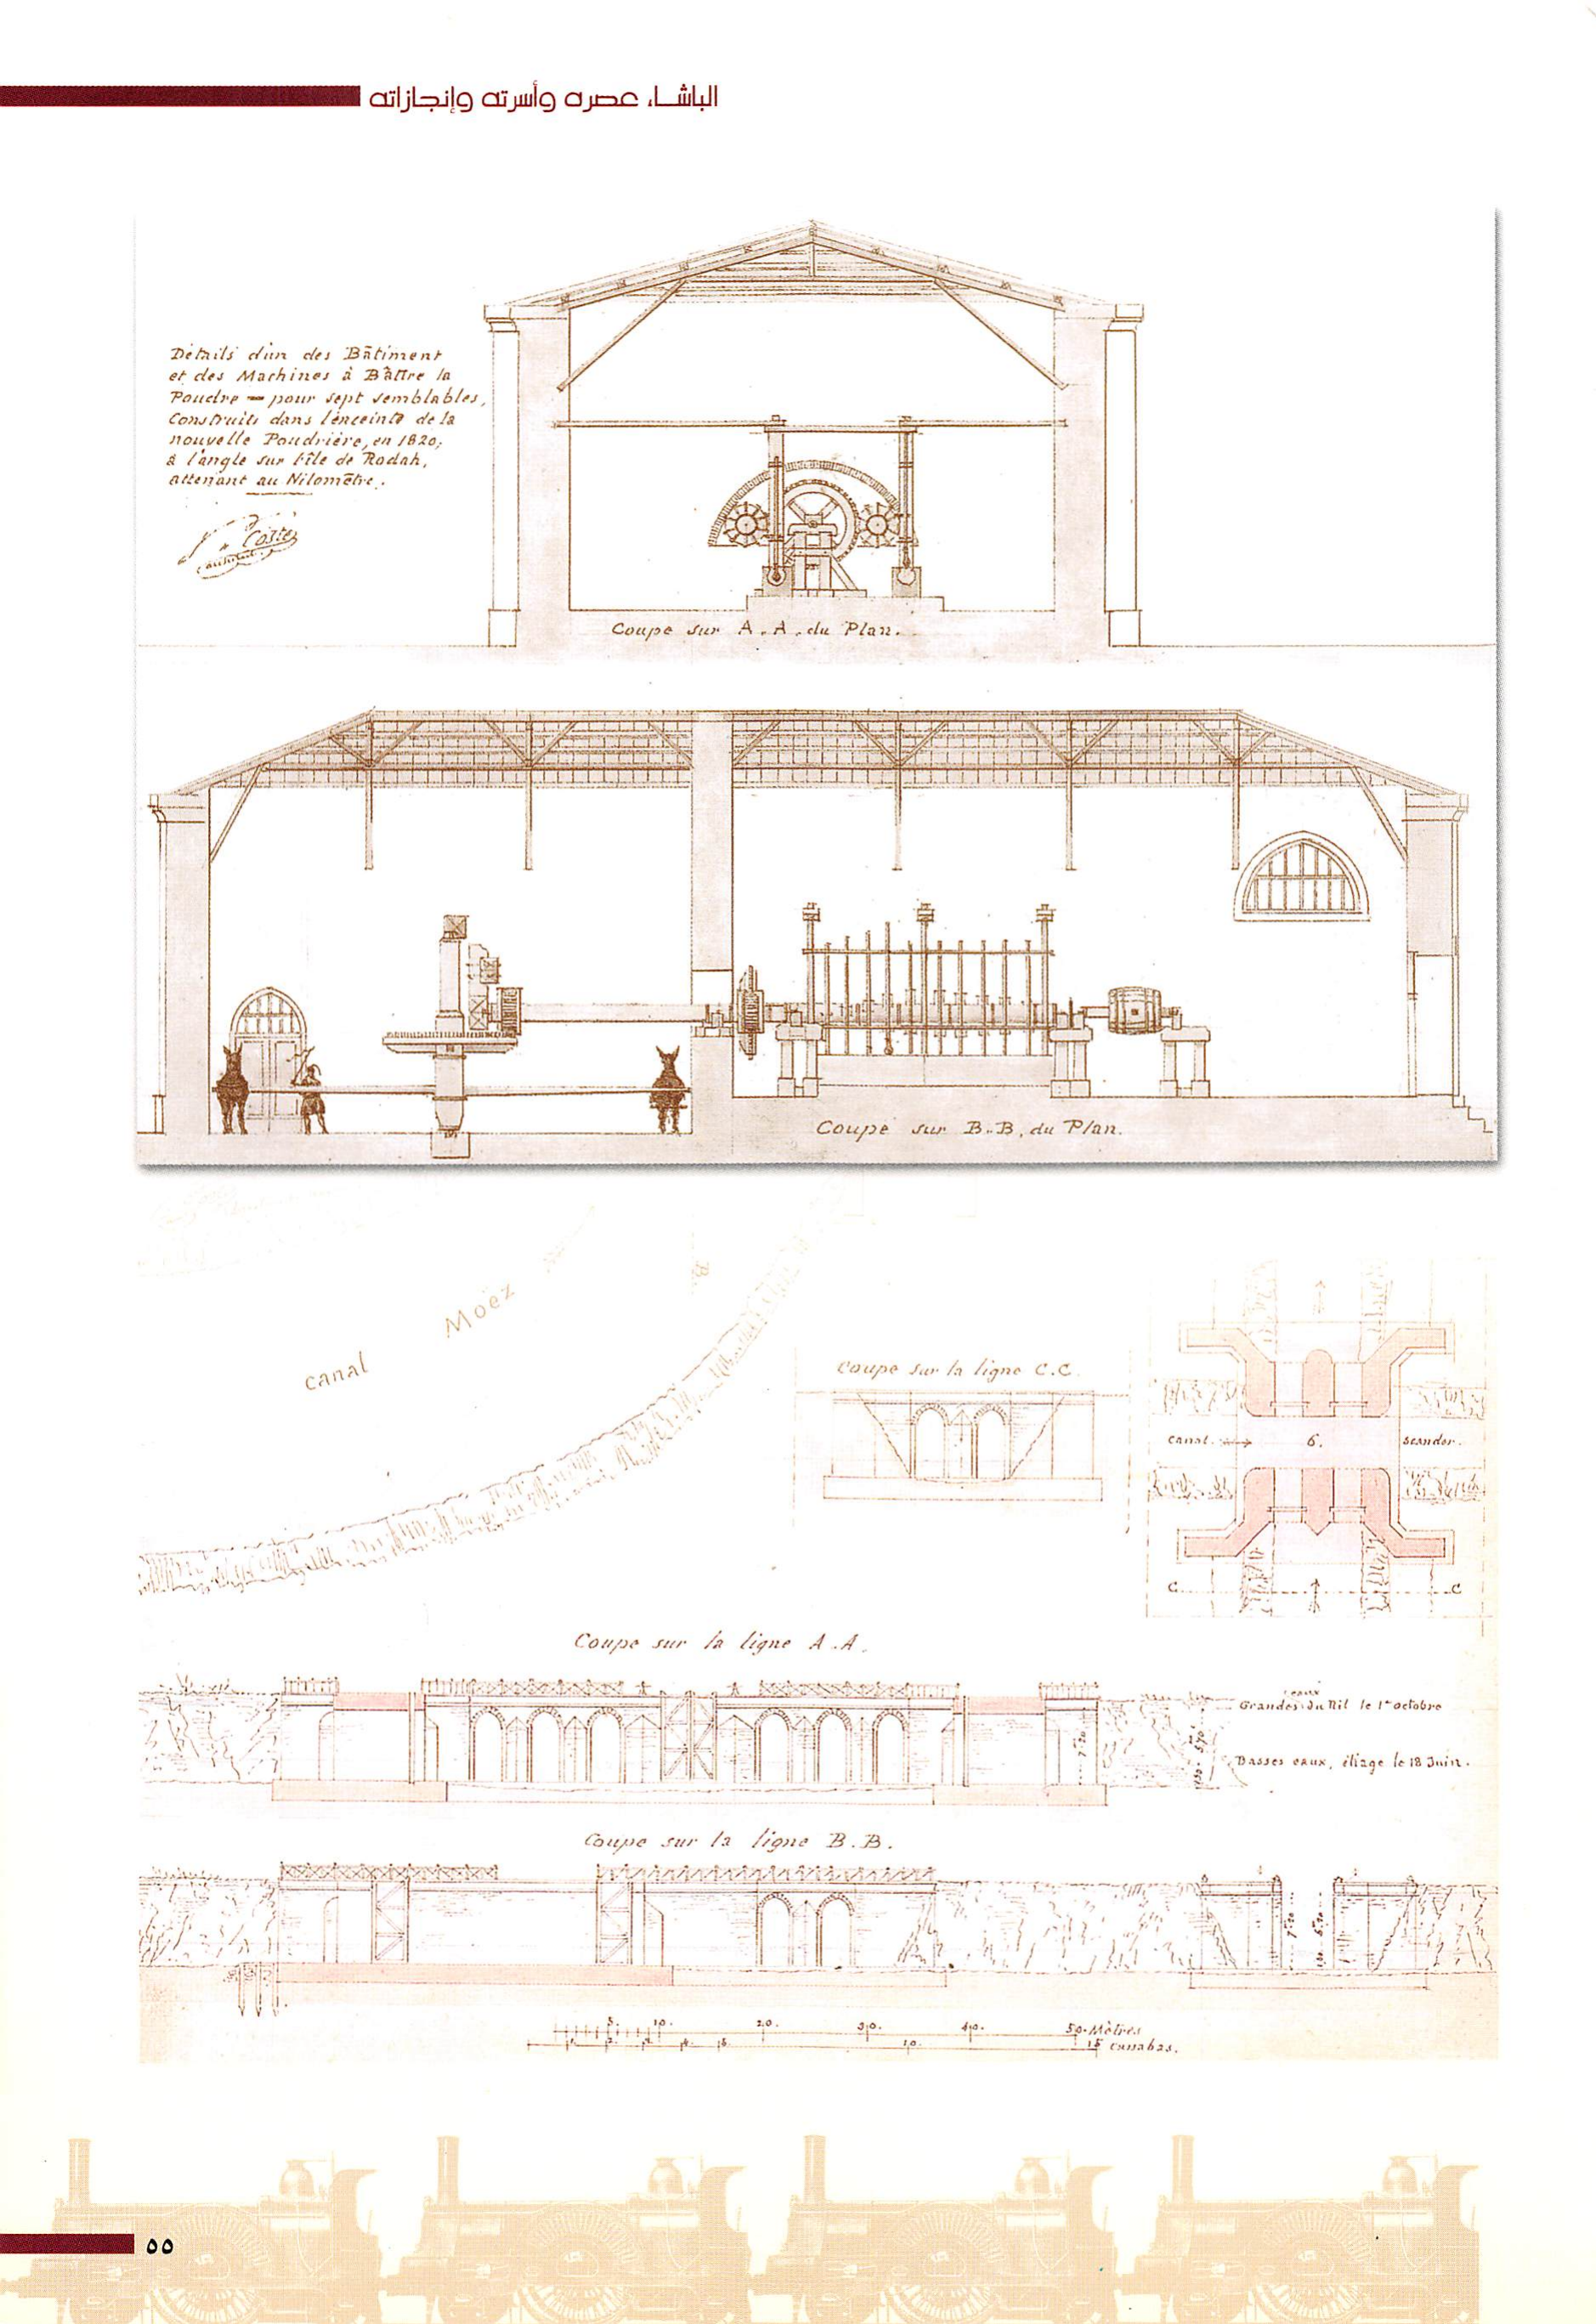 الباشا، عصره وأسرته وإنجازاته
Détails d'un des Bâtiment
et des Machines à Bâttre la
Poudre — pour sept semblables,
Construits dans l'enceinte de la
nouvelle Poudrière, en 1820,
à l'angle sur l'île de Rodah,
attenant au Nilomètre.
Coste
architecte
Coupe sur A.A. du Plan.
Coupe sur B.B. du Plan.
canal Moëz
B.
Coupe sur la ligne C.C.
canal. 6. scander.
C. C
Coupe sur la ligne A.A.
eaux
Grandes du Nil le 1er octobre
7.20
5.70
Basses eaux, étiage le 18 Juin.
Coupe sur la ligne B.B.
7.20
5. 10. 20. 30. 40. 50 Mètres
1 2 3 4 5 10. 15 cassabas.
٥٥